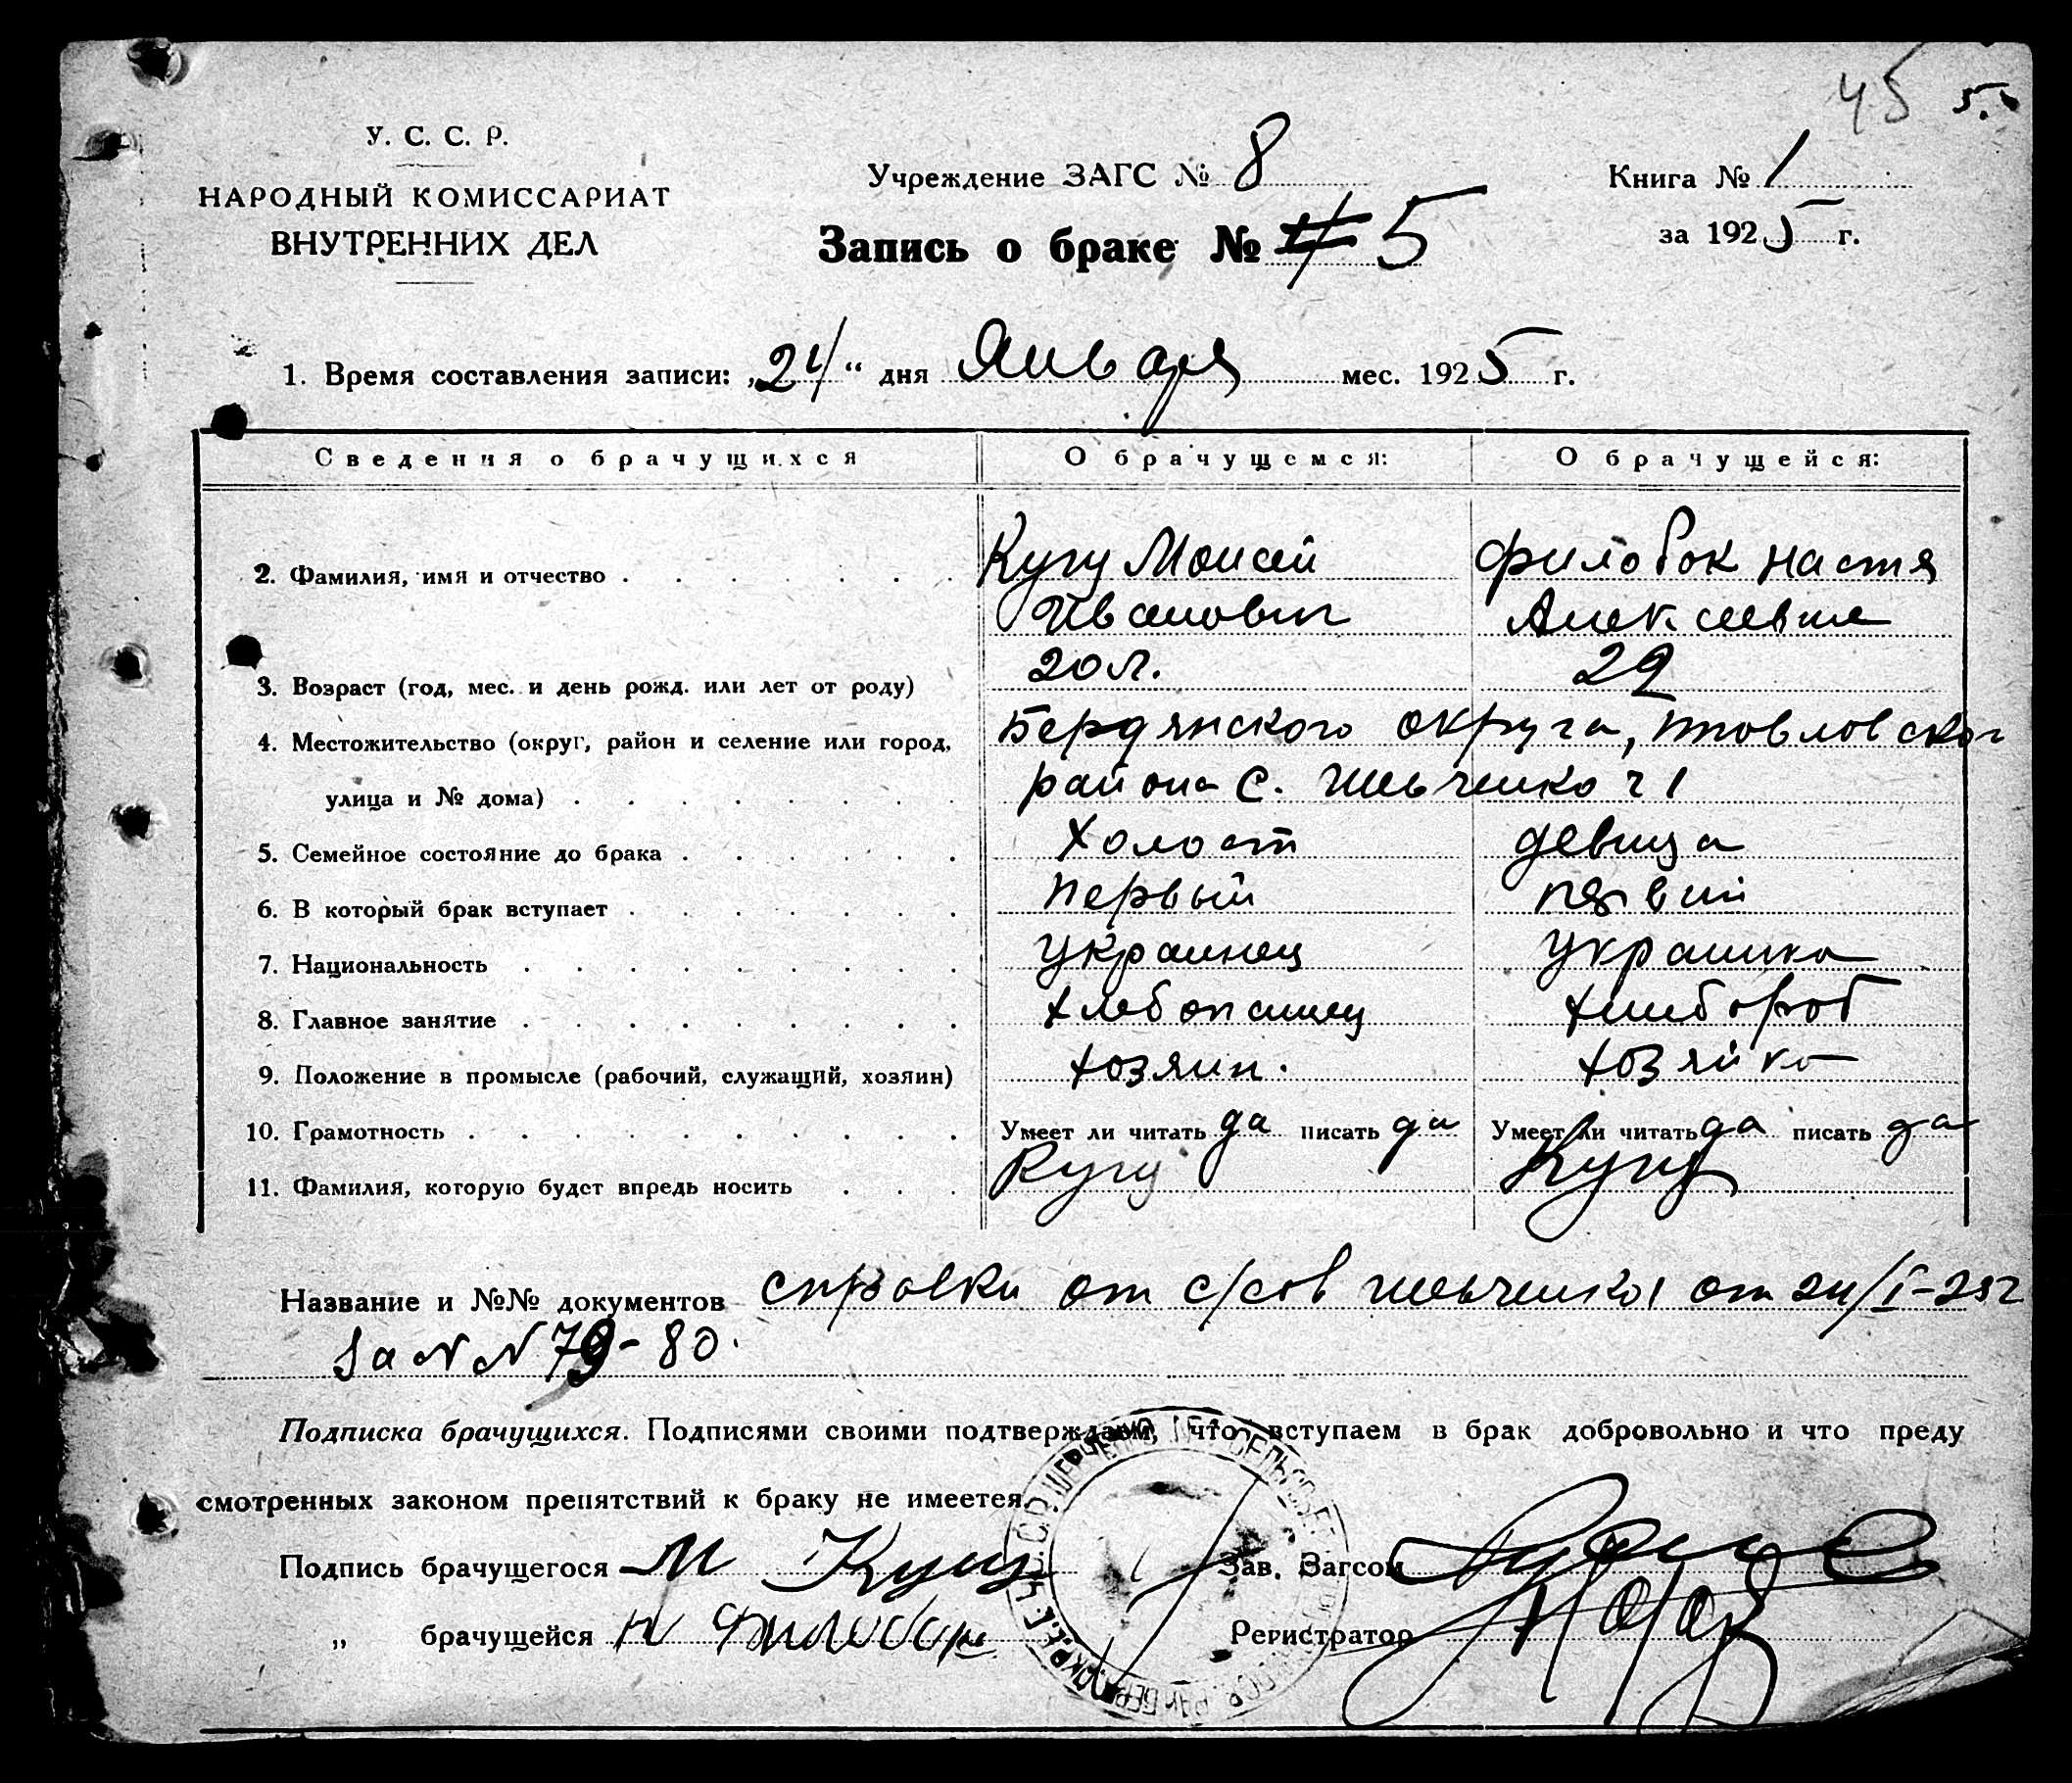 45 5.
У. С. С. Р.
НАРОДНЫЙ КОМИССАРИАТ
ВНУТРЕННИХ ДЕЛ
Учреждение ЗАГС № 8
Запись о браке № 5
Книга № 1
за 1925 г.
1. Время составления записи: „24“ дня Января мес. 1925 г.
Сведения о брачущихся О брачущемся: О брачущейся:
2. Фамилия, имя и отчество Кугу Моисей Филобок Настя
Иванович Алексеевна
3. Возраст (год, мес. и день рожд. или лет от роду) 20 л. 22
4. Местожительство (округ, район и селение или город, Бердянского округа,
улица и № дома) района С. Шевченко 1
5. Семейное состояние до брака Холост девица
6. В который брак вступает первый первий
7. Национальность Украинец Украинка
8. Главное занятие Хлебопашец Хлебороб
9. Положение в промысле (рабочий, служащий, хозяин) хозяин. хозяйка
10. Грамотность Умеет ли читать да писать да Умеет ли читать да писать да
11. Фамилия, которую будет впредь носить Кугу Кугу
Название и №№ документов справки от с/сов Шевченко 1 от 24/I-25 г
за N N 79-80.
Подписка брачущихся. Подписями своими подтверждаем, что вступаем в брак добровольно и что преду
смотренных законом препятствий к браку не имеется.
Подпись брачущегося М Кугу Зав. Загсом
„ брачущейся Н Филобок Регистратор